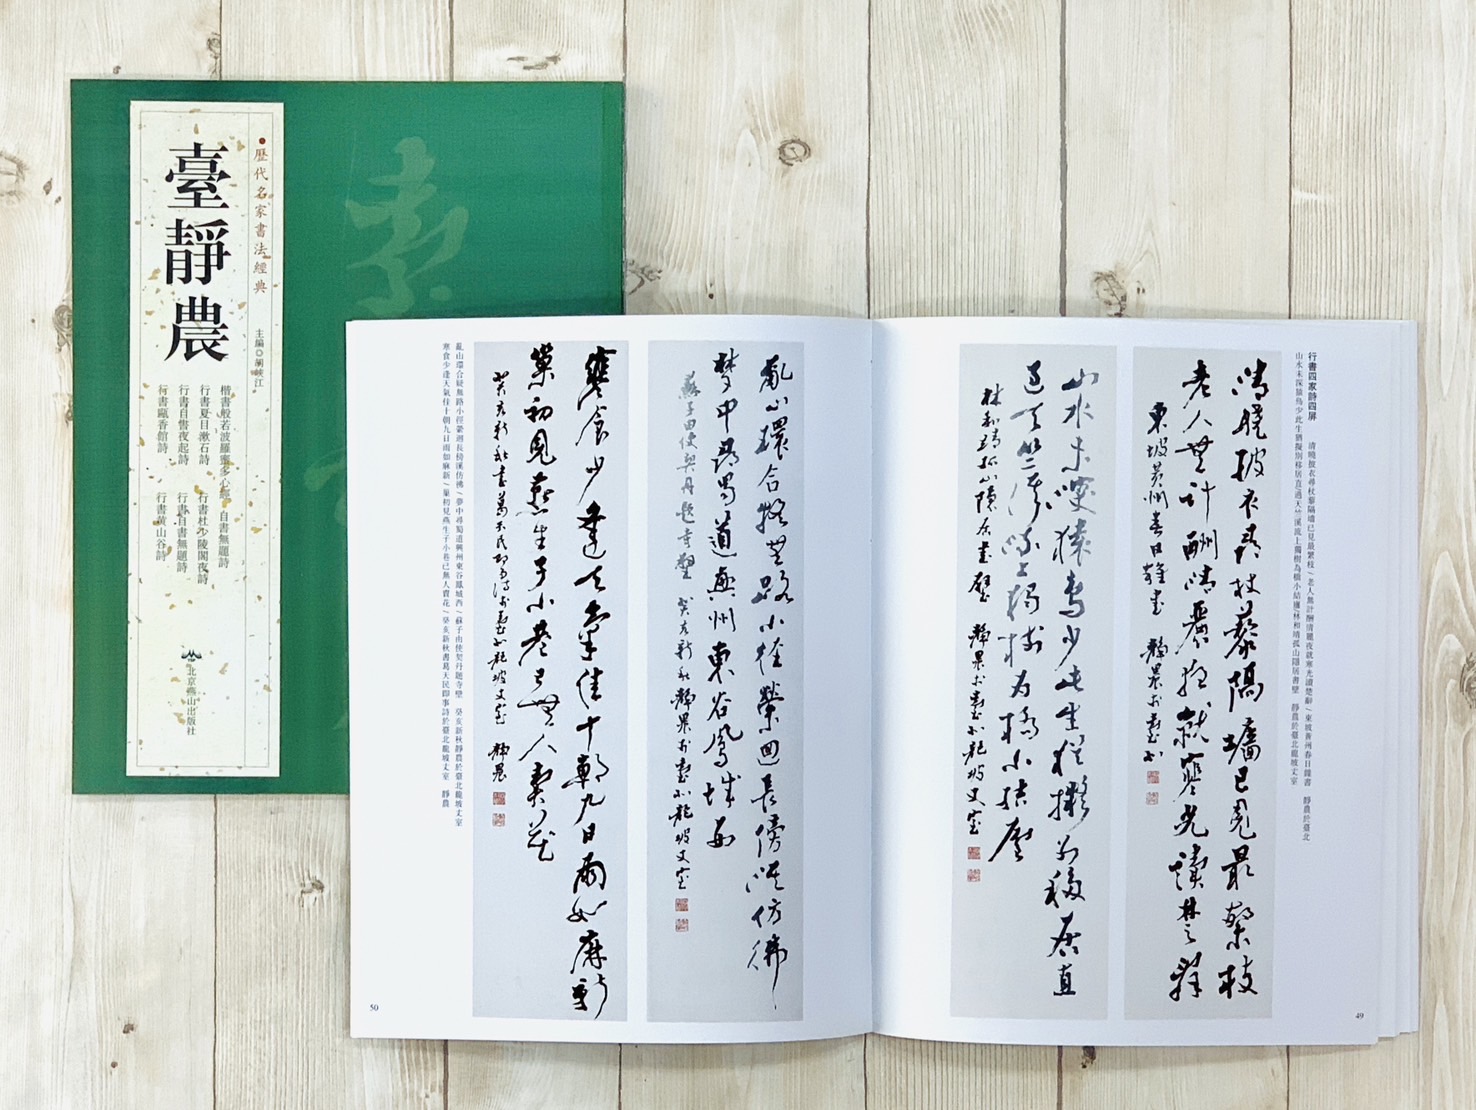 歷代名家書法經典
主編◎闌峽江
臺靜農
楷書般若波羅蜜多心經 自書無題詩
行書夏目漱石詩 行書杜少陵閣夜詩
行書自書夜起詩 行書自書無題詩
行書甌香館詩 行書黃山谷詩
北京燕山出版社
行書四家詩四屏 清曉披衣尋杖藜隔墻已見最繁枝/老人無計酬清麗夜就寒光讀楚辭/東坡黃州春日雜書 靜農於臺北
山水未深猿鳥少此生猶擬別移居直過天竺溪流上獨樹為橋小結廬/林和靖孤山隱居書壁 靜農於臺北龍坡丈室
清曉披衣尋杖藜隔墻已見最繁枝
老人無計酬清麗夜就寒光讀楚辭
東坡黃州春日雜書 靜農於臺北
山水未深猿鳥少此生猶擬別移居直
過天竺溪流上獨樹為橋小結廬
林和靖孤山隱居書壁 靜農於臺北龍坡丈室
49
亂山環合疑無路小徑縈迴長傍溪仿彿
夢中尋蜀道興州東谷鳳城西
蘇子由使契丹題寺壁 癸亥新秋靜農於臺北龍坡丈室
寒食少逢天氣佳十朝九日雨如麻新
巢初見燕生子小巷已無人賣花
癸亥新秋書葛天民即事詩於臺北龍坡丈室 靜農
亂山環合疑無路小徑縈迴長傍溪仿彿/夢中尋蜀道興州東谷鳳城西/蘇子由使契丹題寺壁 癸亥新秋靜農於臺北龍坡丈室
寒食少逢天氣佳十朝九日雨如麻新/巢初見燕生子小巷已無人賣花/癸亥新秋書葛天民即事詩於臺北龍坡丈室 靜農
50